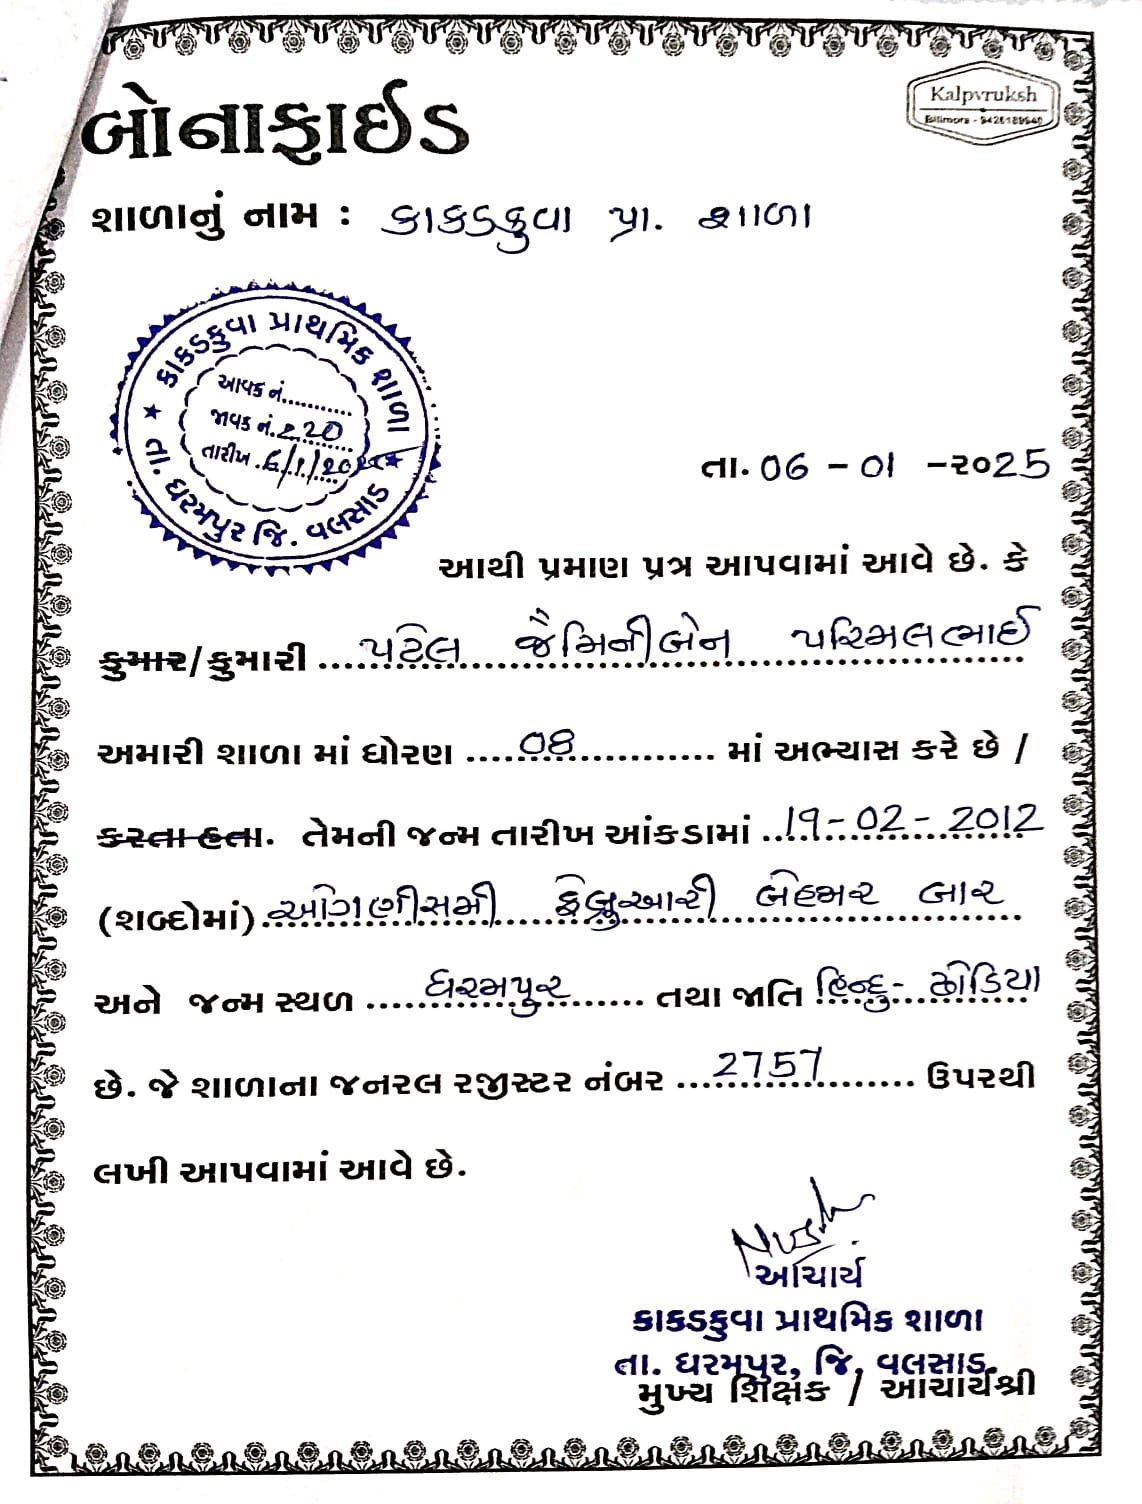 Kalpvruksh
Bilimora - 9426189646
બોનાફાઈડ
શાળાનું નામ : કાકડકુવા પ્રા. શાળા
કાકડકુવા પ્રાથમિક શાળા
આવક નં...........
જાવક નં. ૨20
તારીખ . 6/1/2025
તા. ધરમપુર જિ. વલસાડ
તા. 06 - 01 - ૨૦25
આથી પ્રમાણ પત્ર આપવામાં આવે છે. કે
કુમાર/કુમારી પટેલ જૈમિનીબેન પરિમલભાઈ
અમારી શાળા માં ધોરણ 08 માં અભ્યાસ કરે છે /
કરતા હતા. તેમની જન્મ તારીખ આંકડામાં 19-02-2012
(શબ્દોમાં) ઓગણીસમી ફેબ્રુઆરી બેહજાર બાર
અને જન્મ સ્થળ ધરમપુર તથા જાતિ હિન્દુ- ઢોડિયા
છે. જે શાળાના જનરલ રજીસ્ટર નંબર 2757 ઉપરથી
લખી આપવામાં આવે છે.
આચાર્ય
કાકડકુવા પ્રાથમિક શાળા
તા. ધરમપુર, જિ. વલસાડ.
મુખ્ય શિક્ષક / આચાર્યશ્રી